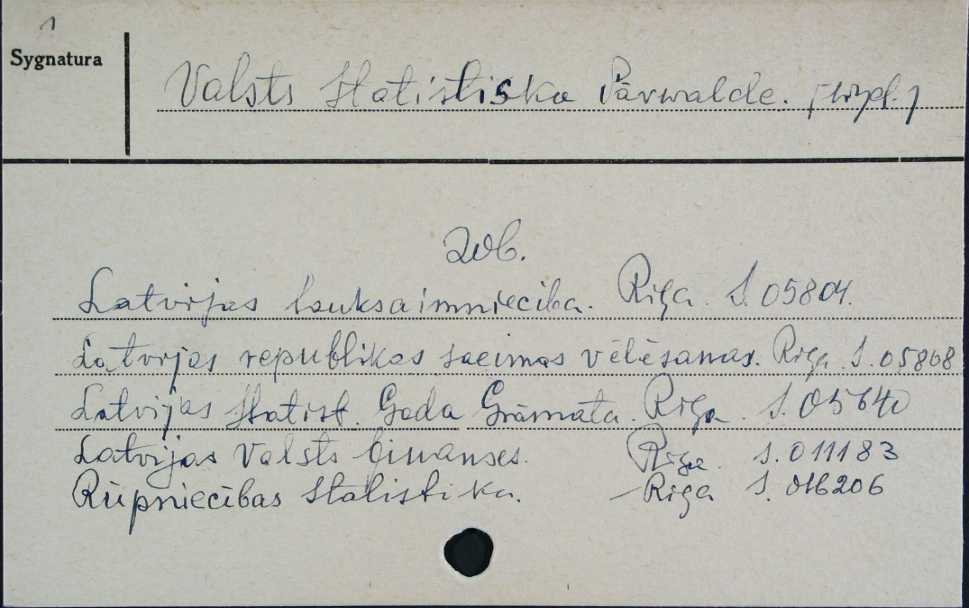 1
Sygnatura
Valsts Statistiska Pārvalde. [wyd.]
Zob.
Latvijas lauksaimnieciba. Riga. S.05804.
Latvijas republikas saeimas vēlēsanas. Riga. S.05808
Latvijas Statist. Gada Grāmata. Riga. S.05640
Latvijas Valsts finanses. Riga. S.011183
Rūpniecības Statistika. Riga S.016206